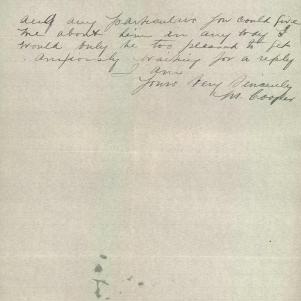 and any particulars you could give
me about him or any body I
would only be too pleased to get
. Anxiously waiting for a reply
I am
Yours Very Sincerely
W. Cooper